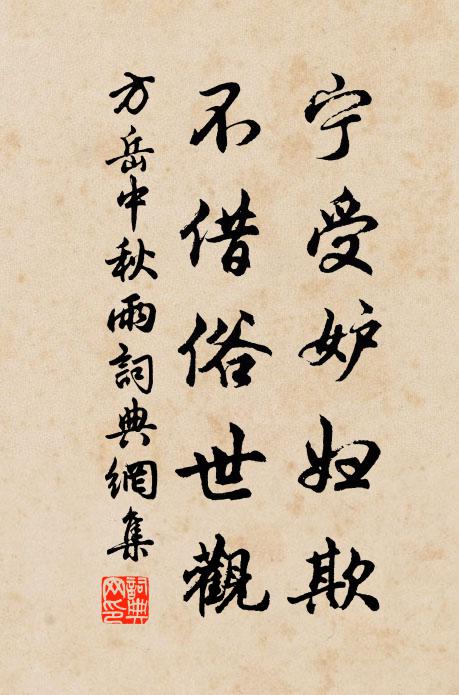 宁受妒妇欺
不借俗世觀
方岳中秋雨詞典網集
詞典網印